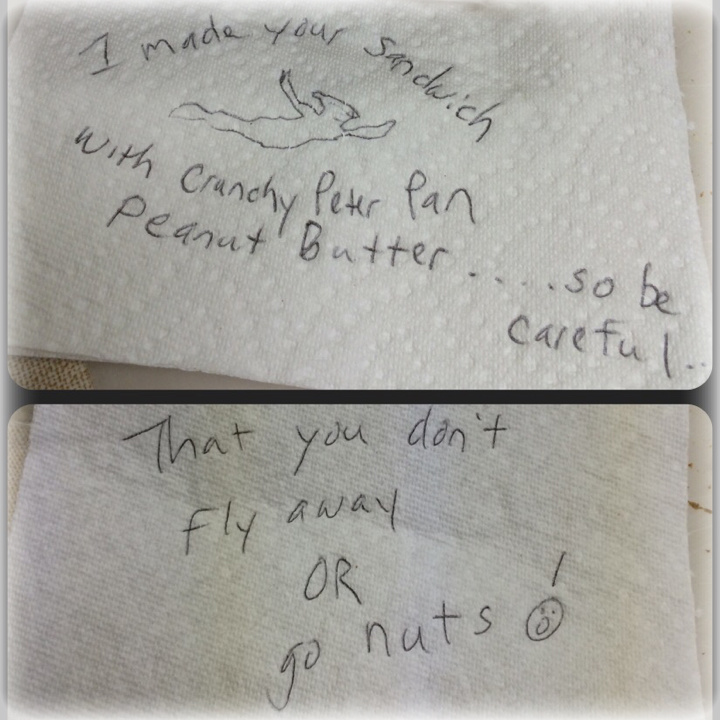 I made your sandwich
with Crunchy Peter Pan
Peanut Butter.....so be
careful..
That you don't
fly away
OR
go nuts!